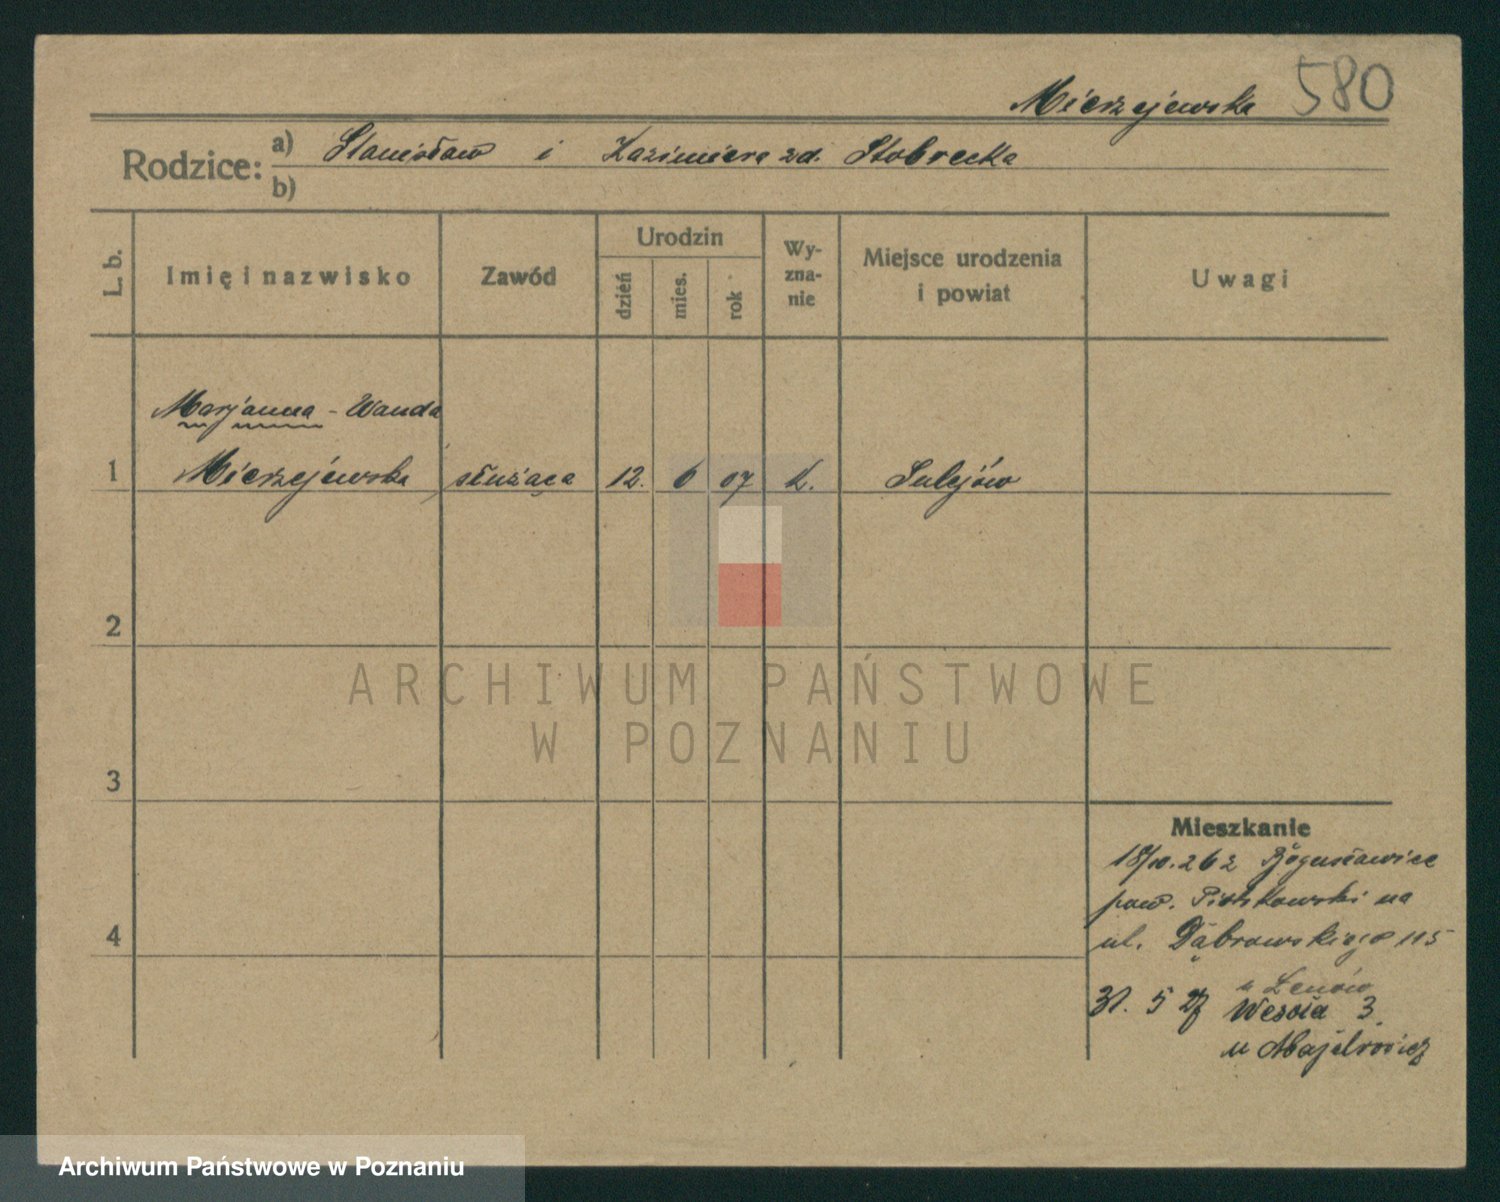 Mierzejewska 580
Rodzice: a) Stanisław i Kazimiera zd. Stobrecka
b)
L. b. Imię i nazwisko Zawód Urodzin dzień mies. rok Wyznanie Miejsce urodzenia i powiat Uwagi
Marjanna - Wanda
1 Mierzejewska służąca 12. 6 07 k. Sulejów
2
ARCHIWUM PAŃSTWOWE
W POZNANIU
3
Mieszkanie
18/10.26 z Bogusławice
pow. Piotrkowski na
4
ul. Dąbrowskiego 115
u
31. 5 27 Wesoła 3
u
Archiwum Państwowe w Poznaniu